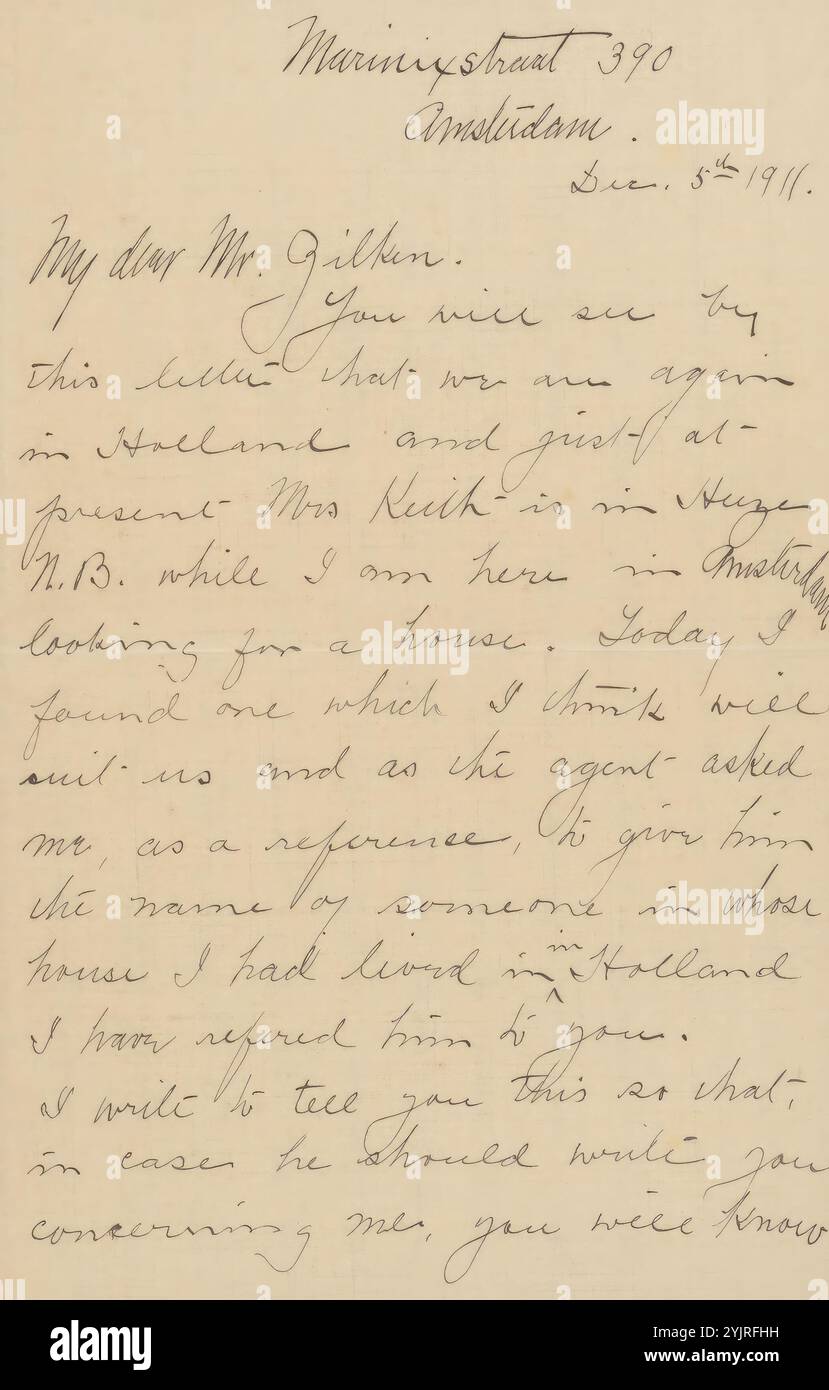 Marnixstraat 390
Amsterdam.
Dec. 5th 1911.
My dear Mr. Zilken.
You will see by
this letter that we are again
in Holland and just at
present Mrs Keith is in Heeze
N.B. while I am here in Amsterdam
looking for a house. Today I
found one which I think will
suit us and as the agent asked
me, as a reference, to give him
the name of someone in whose
house I had lived in in Holland
I have refered him to you.
I write to tell you this so that,
in case he should write you
concerning me, you will know
alamy
a
alamy
Image ID: 2YJRFHH
www.alamy.com